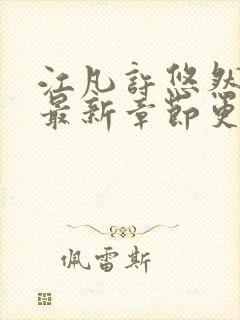 江凡许悠然
最新章节更
佩雷斯